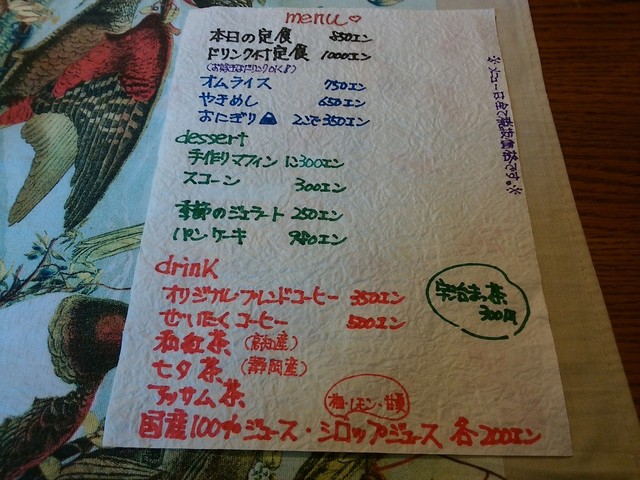 menu♡
本日の定食 850エン
ドリンク付定食 1000エン
(お好きなドリンクがくよ)
オムライス 750エン
やきめし 650エン
おにぎり 2こで350エン
dessert
手作りマフィン 1こ300エン
スコーン 300エン
季節のジェラート 250エン
パンケーキ 980エン
drink
オリジナルブレンドコーヒー 350エン
ぜいたくコーヒー 500エン
和紅茶 (高知産)
七夕茶 (静岡産)
アッサム茶
梅・レモン・甘夏
国産100%ジュース・シロップジュース 各200エン
宇治まっ茶
300円
※メニューは全て税抜価格です。※